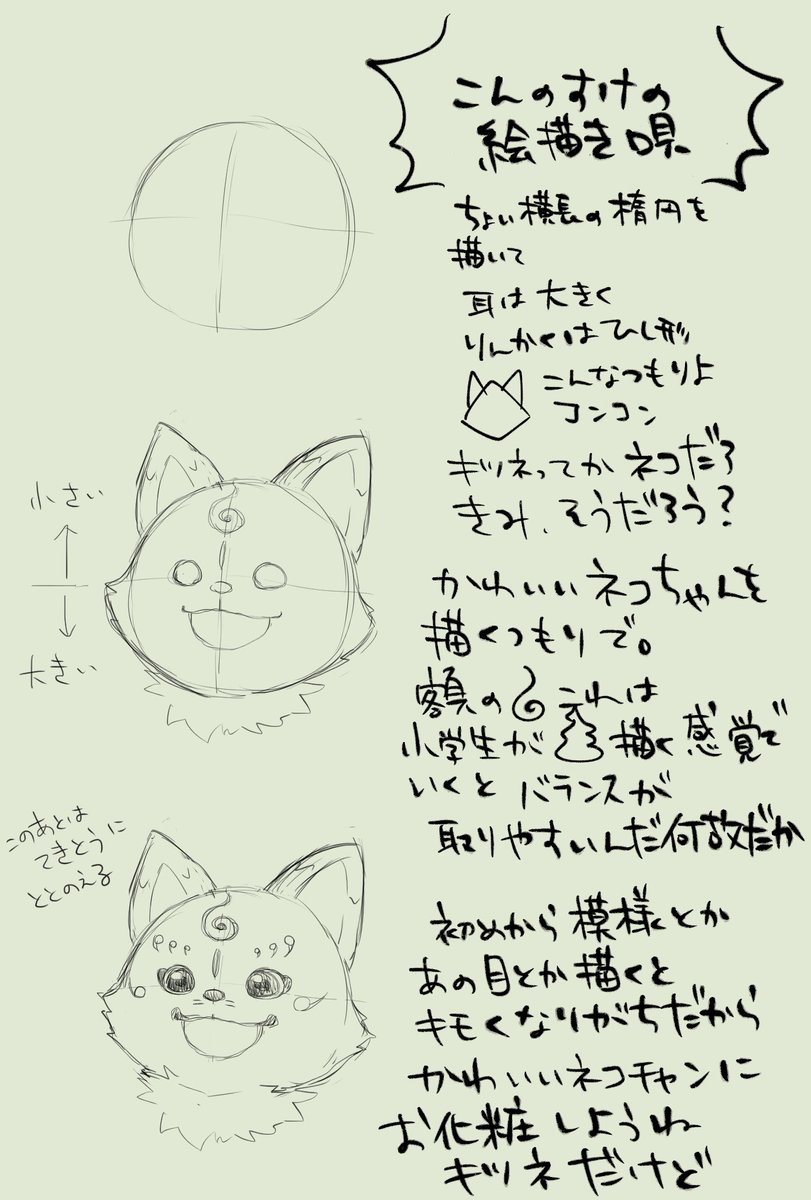 こんのすけの
絵描き唄
ちょい横長の楕円を
描いて
耳は大きく
りんかくはひし形
こんなつもりよ
コンコン
キツネってかネコだろ
きみ、そうだろう?
かわいいネコちゃんを
描くつもりで。
額の これは
小学生が 描く感覚で
いくとバランスが
取りやすいんだ何故だか
初めから模様とか
あの目とか描くと
キモくなりがちだから
かわいいネコチャンに
お化粧しようね
キツネだけど
小さい
大きい
このあとは
てきとうに
ととのえる